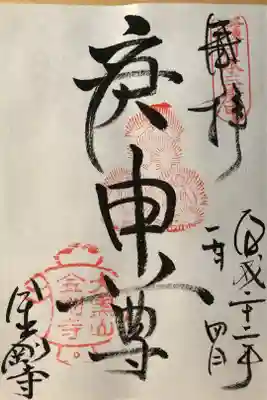 奉拝
平成二十二年
四日
庚申尊
大黒山
金剛寺
金剛寺